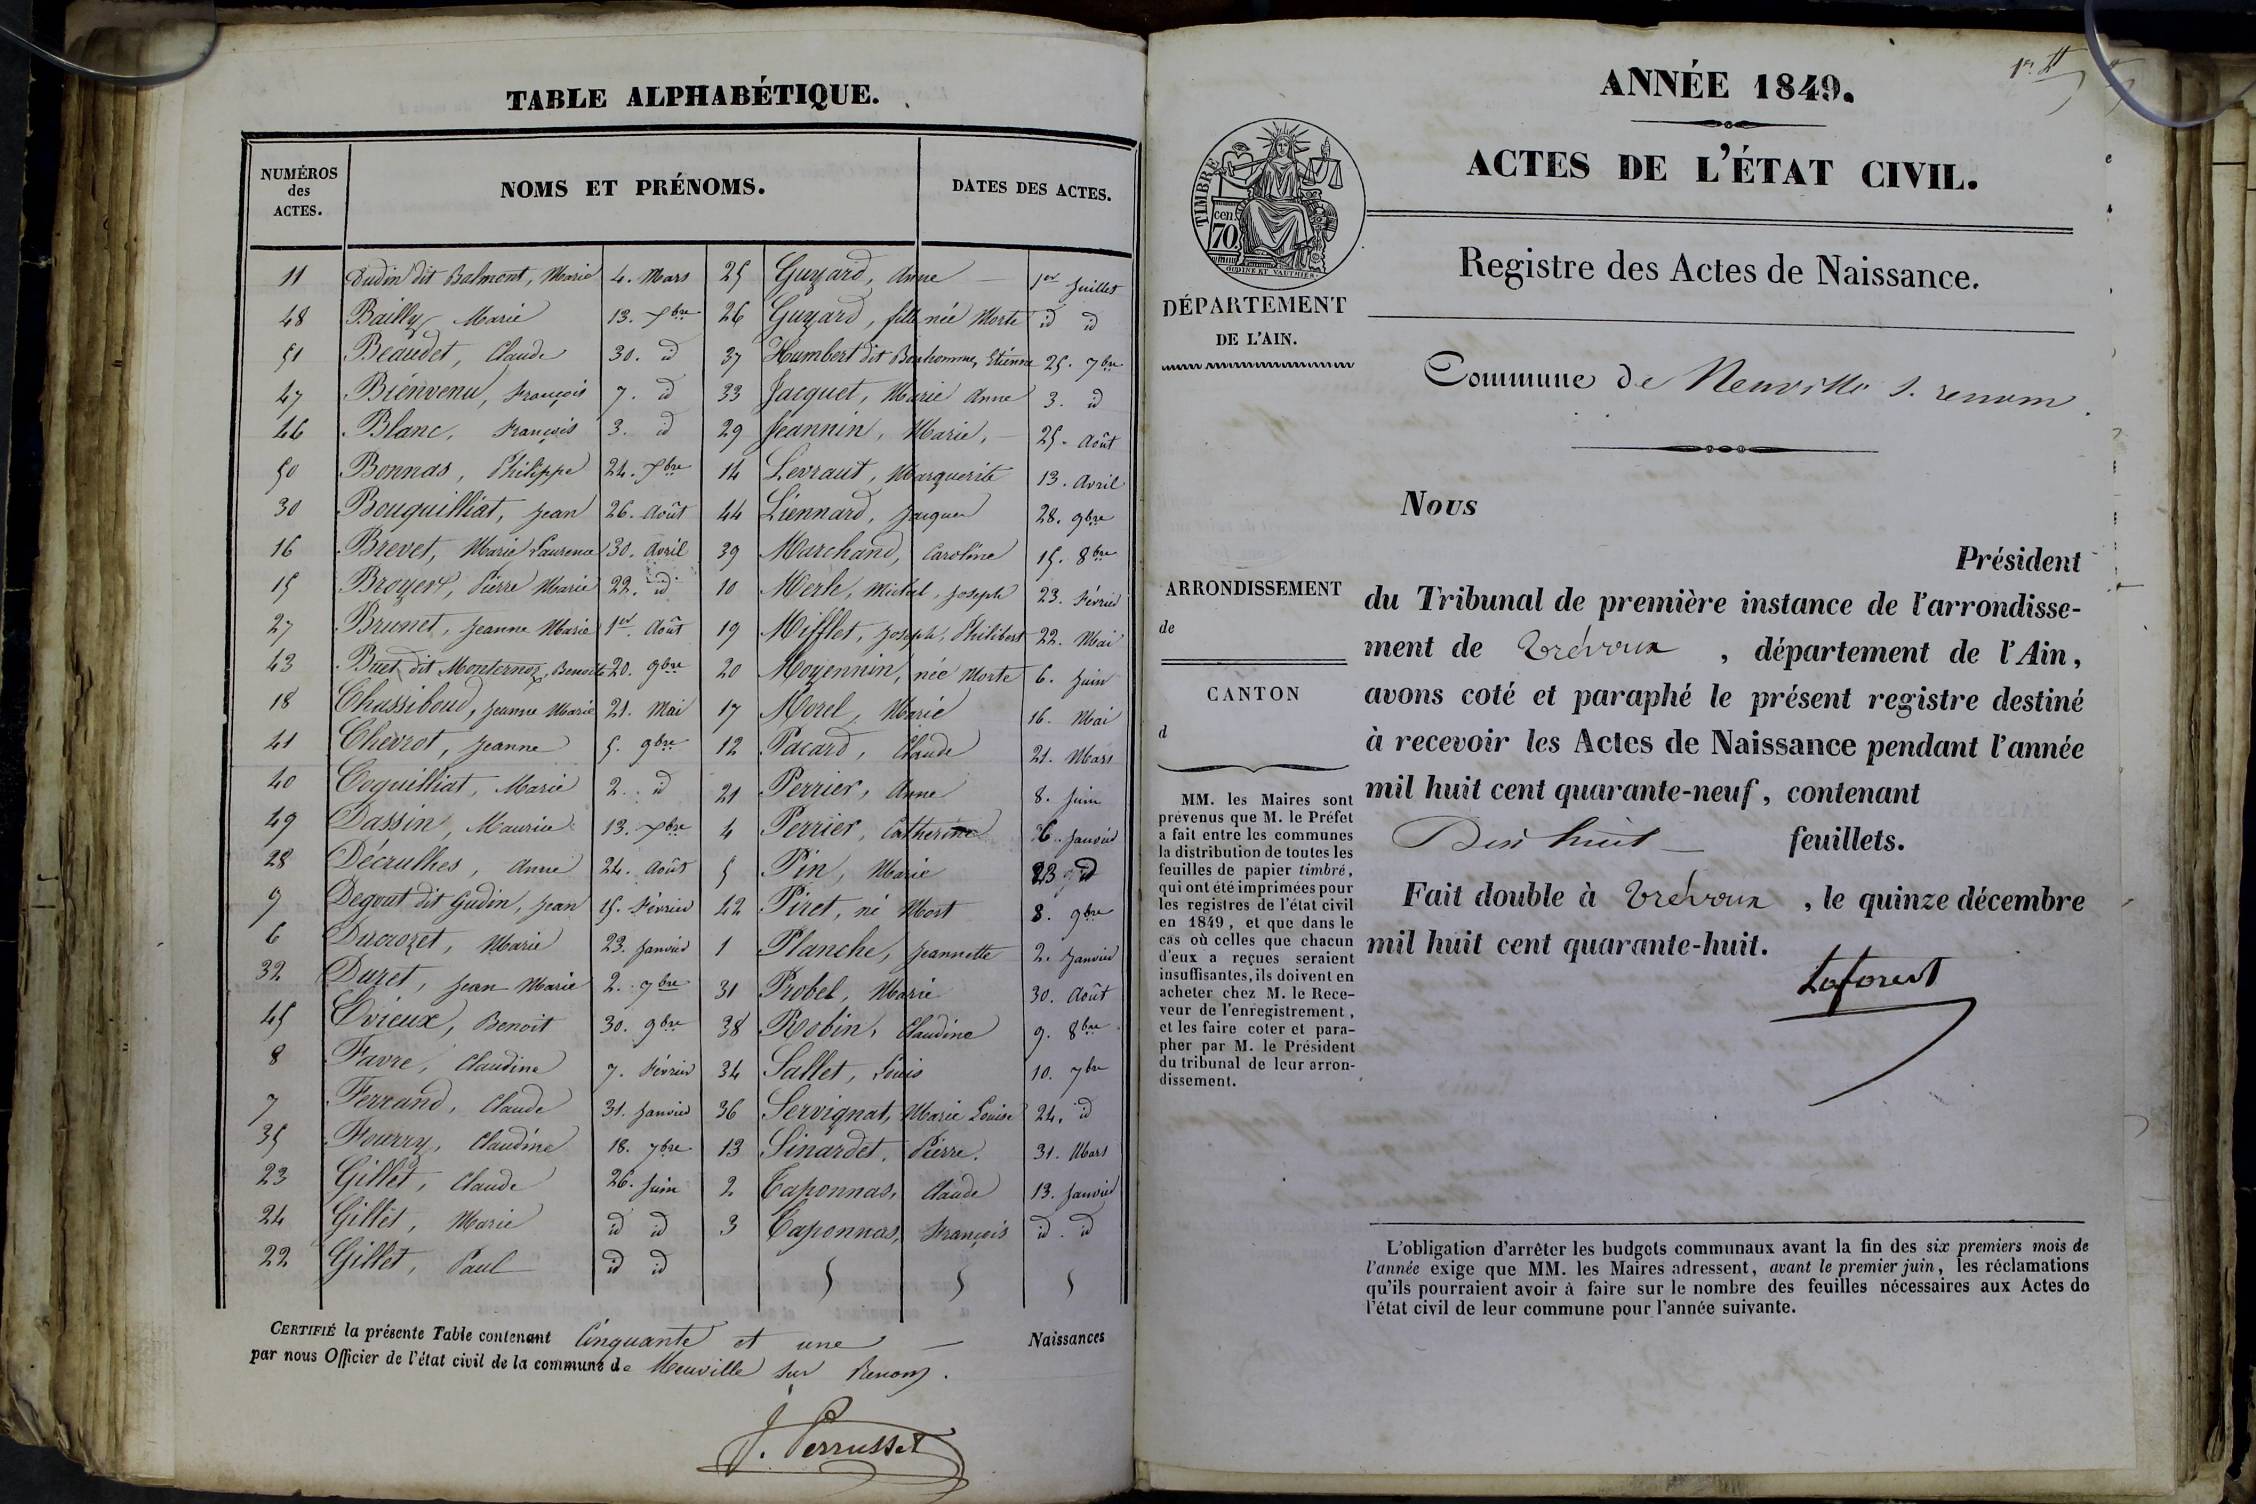 TABLE ALPHABÉTIQUE.
NUMÉROS des ACTES.
NOMS ET PRÉNOMS.
DATES DES ACTES.
11 Dudin dit Balmont, Marie 4. Mars
48 Bailly, Marie 13. Xbre
51 Beaudet, Claude 30. id
47 Biénvenu, François 7. id
46 Blanc, François 3. id
50 Bonnas, Philippe 24. Xbre
30 Bouquilliat, Jean 26. Août
16 Brevet, Marie Laurence 30. Avril
15 Broyer, Pierre Marie 22. id
27 Brunet, Jeanne Marie 1er Août
43 Buet dit Monternoz, Benoite 20. 9bre
18 Chassiboud, Jeanne Marie 21. Mai
41 Chevrot, Jeanne 5. 9bre
40 Coquilliat, Marie 2. id
49 Dassin, Maurice 13. Xbre
28 Décrulhes, Anne 24. Août
9 Degout dit Gudin, Jean 15. Février
6 Ducrozet, Marie 23. Janvier
32 Duret, Jean Marie 2. 7bre
45 Evieux, Benoit 30. 9bre
8 Favre, Claudine 7. Février
7 Ferrand, Claude 31. Janvier
35 Fourry, Claudine 18. 7bre
23 Gillet, Claude 26. Juin
24 Gillet, Marie id id
22 Gillet, Paul id id
25 Guyard, Anne 1er Juillet
26 Guyard, fille née Morte id id
37 Humbert dit Bonhomme, Etienne 25. 7bre
33 Jacquet, Marie Anne 3. id
29 Jeannin, Marie, 25. Août
14 Levraut, Marguerite 13. Avril
44 Liennard, Jacques 28. 9bre
39 Marchand, Caroline 15. 8bre
10 Merle, Michel, Joseph 23. Février
19 Mifflet, Joseph, Philibert 22. Mai
20 Moyennin, née Morte 6. Juin
17 Morel, Marie 16. Mai
12 Pacard, Claude 21. Mars
21 Perrier, Anne 8. Juin
4 Perrier, Catherine 16. Janvier
5 Pin, Marie 23 id
42 Piret, né Mort 8. 9bre
1 Planche, Jeannette 2. Janvier
31 Probel, Marie 30. Août
38 Robin, Claudine 9. 8bre
34 Sallet, Louis 10. 7bre
36 Servignat, Marie Louise 24. id
13 Sinardet, Pierre. 31. Mars
2 Taponnas, Claude 13. Janvier
3 Taponnas, François id. id
CERTIFIÉ la présente Table contenant Cinquante et une Naissances
par nous Officier de l'état civil de la commune de Neuville sur Renom.
J. Perrusset
1er
ANNÉE 1849.
ACTES DE L'ÉTAT CIVIL.
TIMBRE
cen.
70
OUDINE ET VAUTHIER
Registre des Actes de Naissance.
DÉPARTEMENT
DE L'AIN.
Commune de Neuville s. renom.
Nous
Président
du Tribunal de première instance de l'arrondisse-
ment de Trévoux, département de l'Ain,
avons coté et paraphé le présent registre destiné
à recevoir les Actes de Naissance pendant l'année
mil huit cent quarante-neuf, contenant
Dix huit feuillets.
Fait double à Trévoux, le quinze décembre
mil huit cent quarante-huit.
Laforest
ARRONDISSEMENT
de
CANTON
d
MM. les Maires sont
prévenus que M. le Préfet
a fait entre les communes
la distribution de toutes les
feuilles de papier timbré,
qui ont été imprimées pour
les registres de l'état civil
en 1849, et que dans le
cas où celles que chacun
d'eux a reçues seraient
insuffisantes, ils doivent en
acheter chez M. le Rece-
veur de l'enregistrement,
et les faire coter et para-
pher par M. le Président
du tribunal de leur arron-
dissement.
L'obligation d'arrêter les budgets communaux avant la fin des six premiers mois de
l'année exige que MM. les Maires adressent, avant le premier juin, les réclamations
qu'ils pourraient avoir à faire sur le nombre des feuilles nécessaires aux Actes de
l'état civil de leur commune pour l'année suivante.